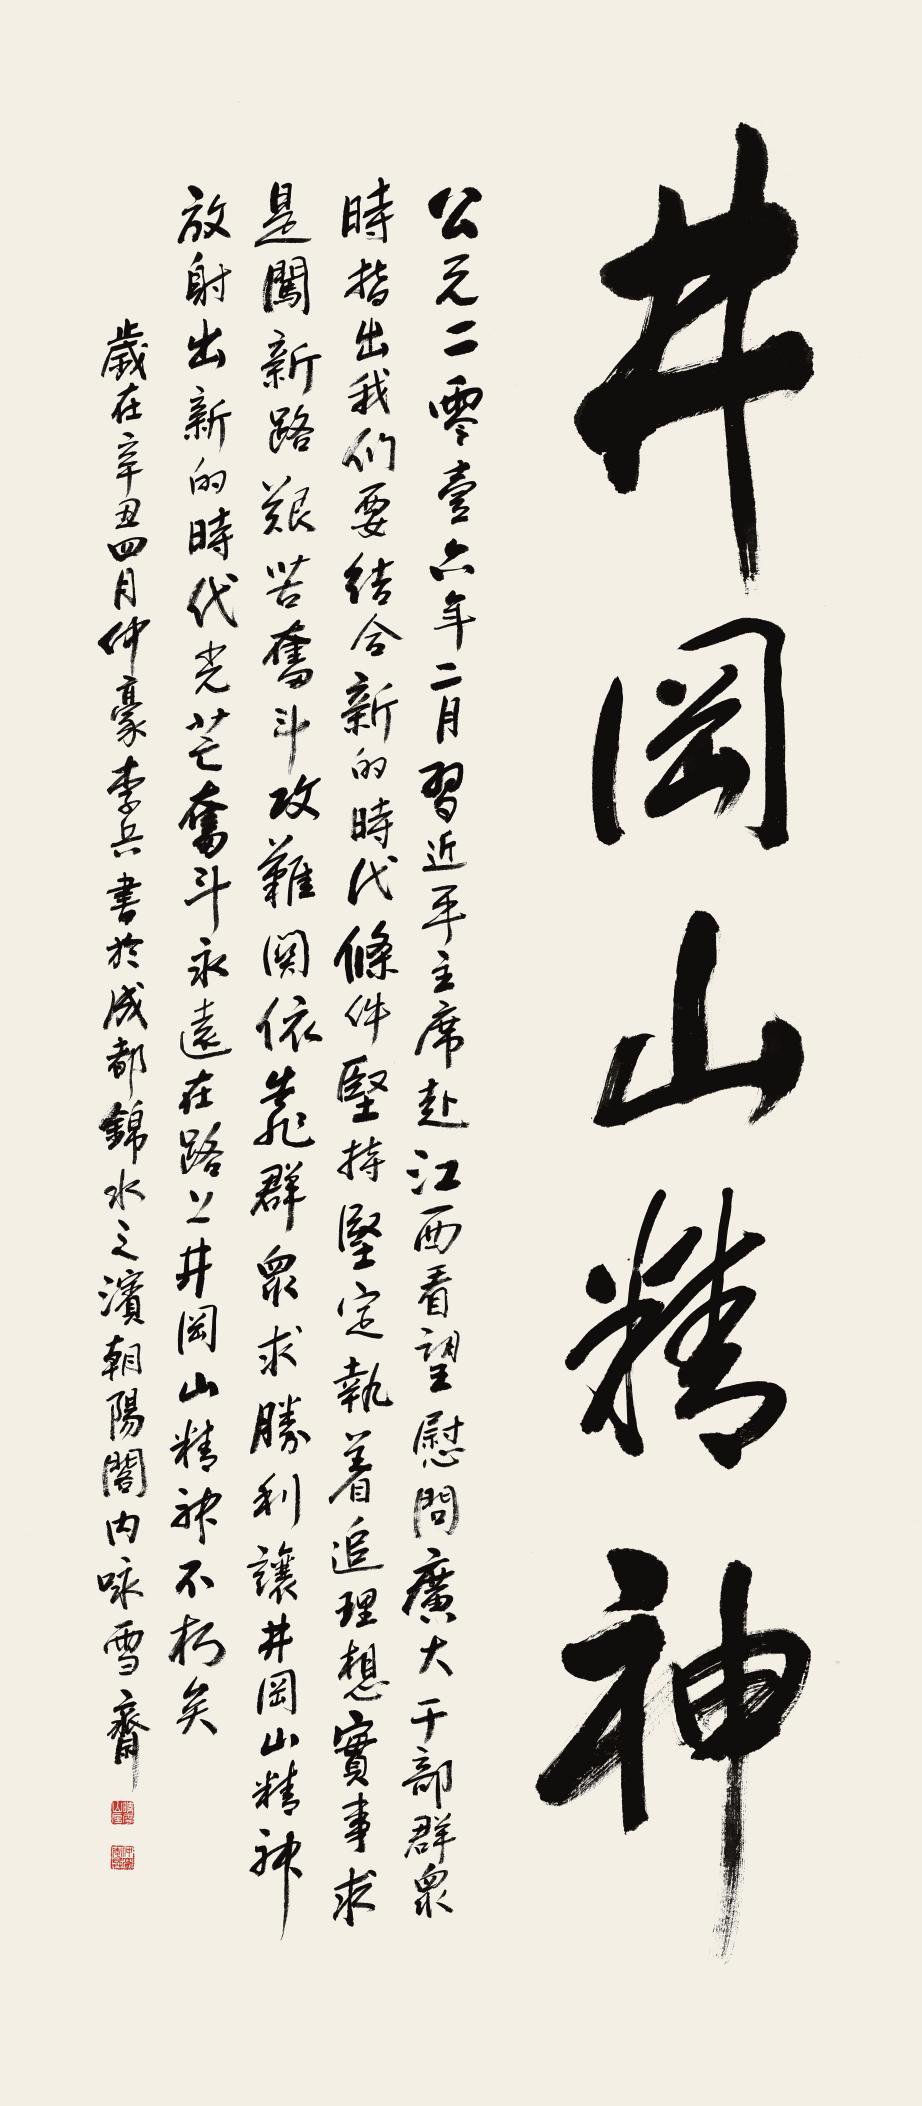 井岡山精神
公元二零壹六年二月習近平主席赴江西看望慰問廣大干部群衆
時指出我们要结合新的時代條件堅持堅定執着追理想實事求
是闖新路艱苦奮斗攻難関依靠群衆求勝利讓井岡山精神
放射出新的時代光芒奮斗永遠在路上井岡山精神不朽矣
歲在辛丑四月仲豪李兵書於成都錦水之濱朝陽閣内咏雪齋